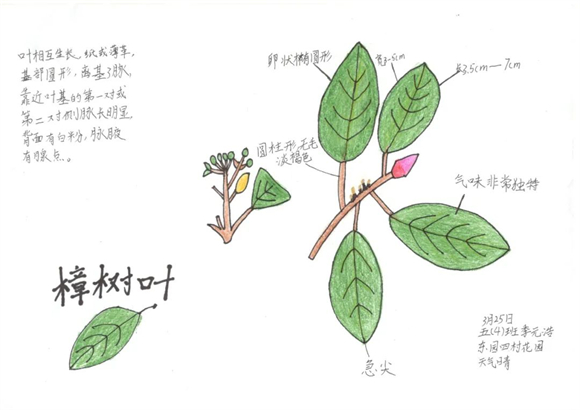 叶相互生长,纸或薄革,
基部圆形,离基3脉,
靠近叶基的第一对或
第二对侧脉长明显,
背面有白粉,脉腋
有腺点。
卵状椭圆形
宽3-5cm
长3.5cm—7cm
圆柱形无毛
淡褐色
气味非常独特
樟树叶
急尖
3月25日
五(4)班李元浩
东园四村花园
天气晴